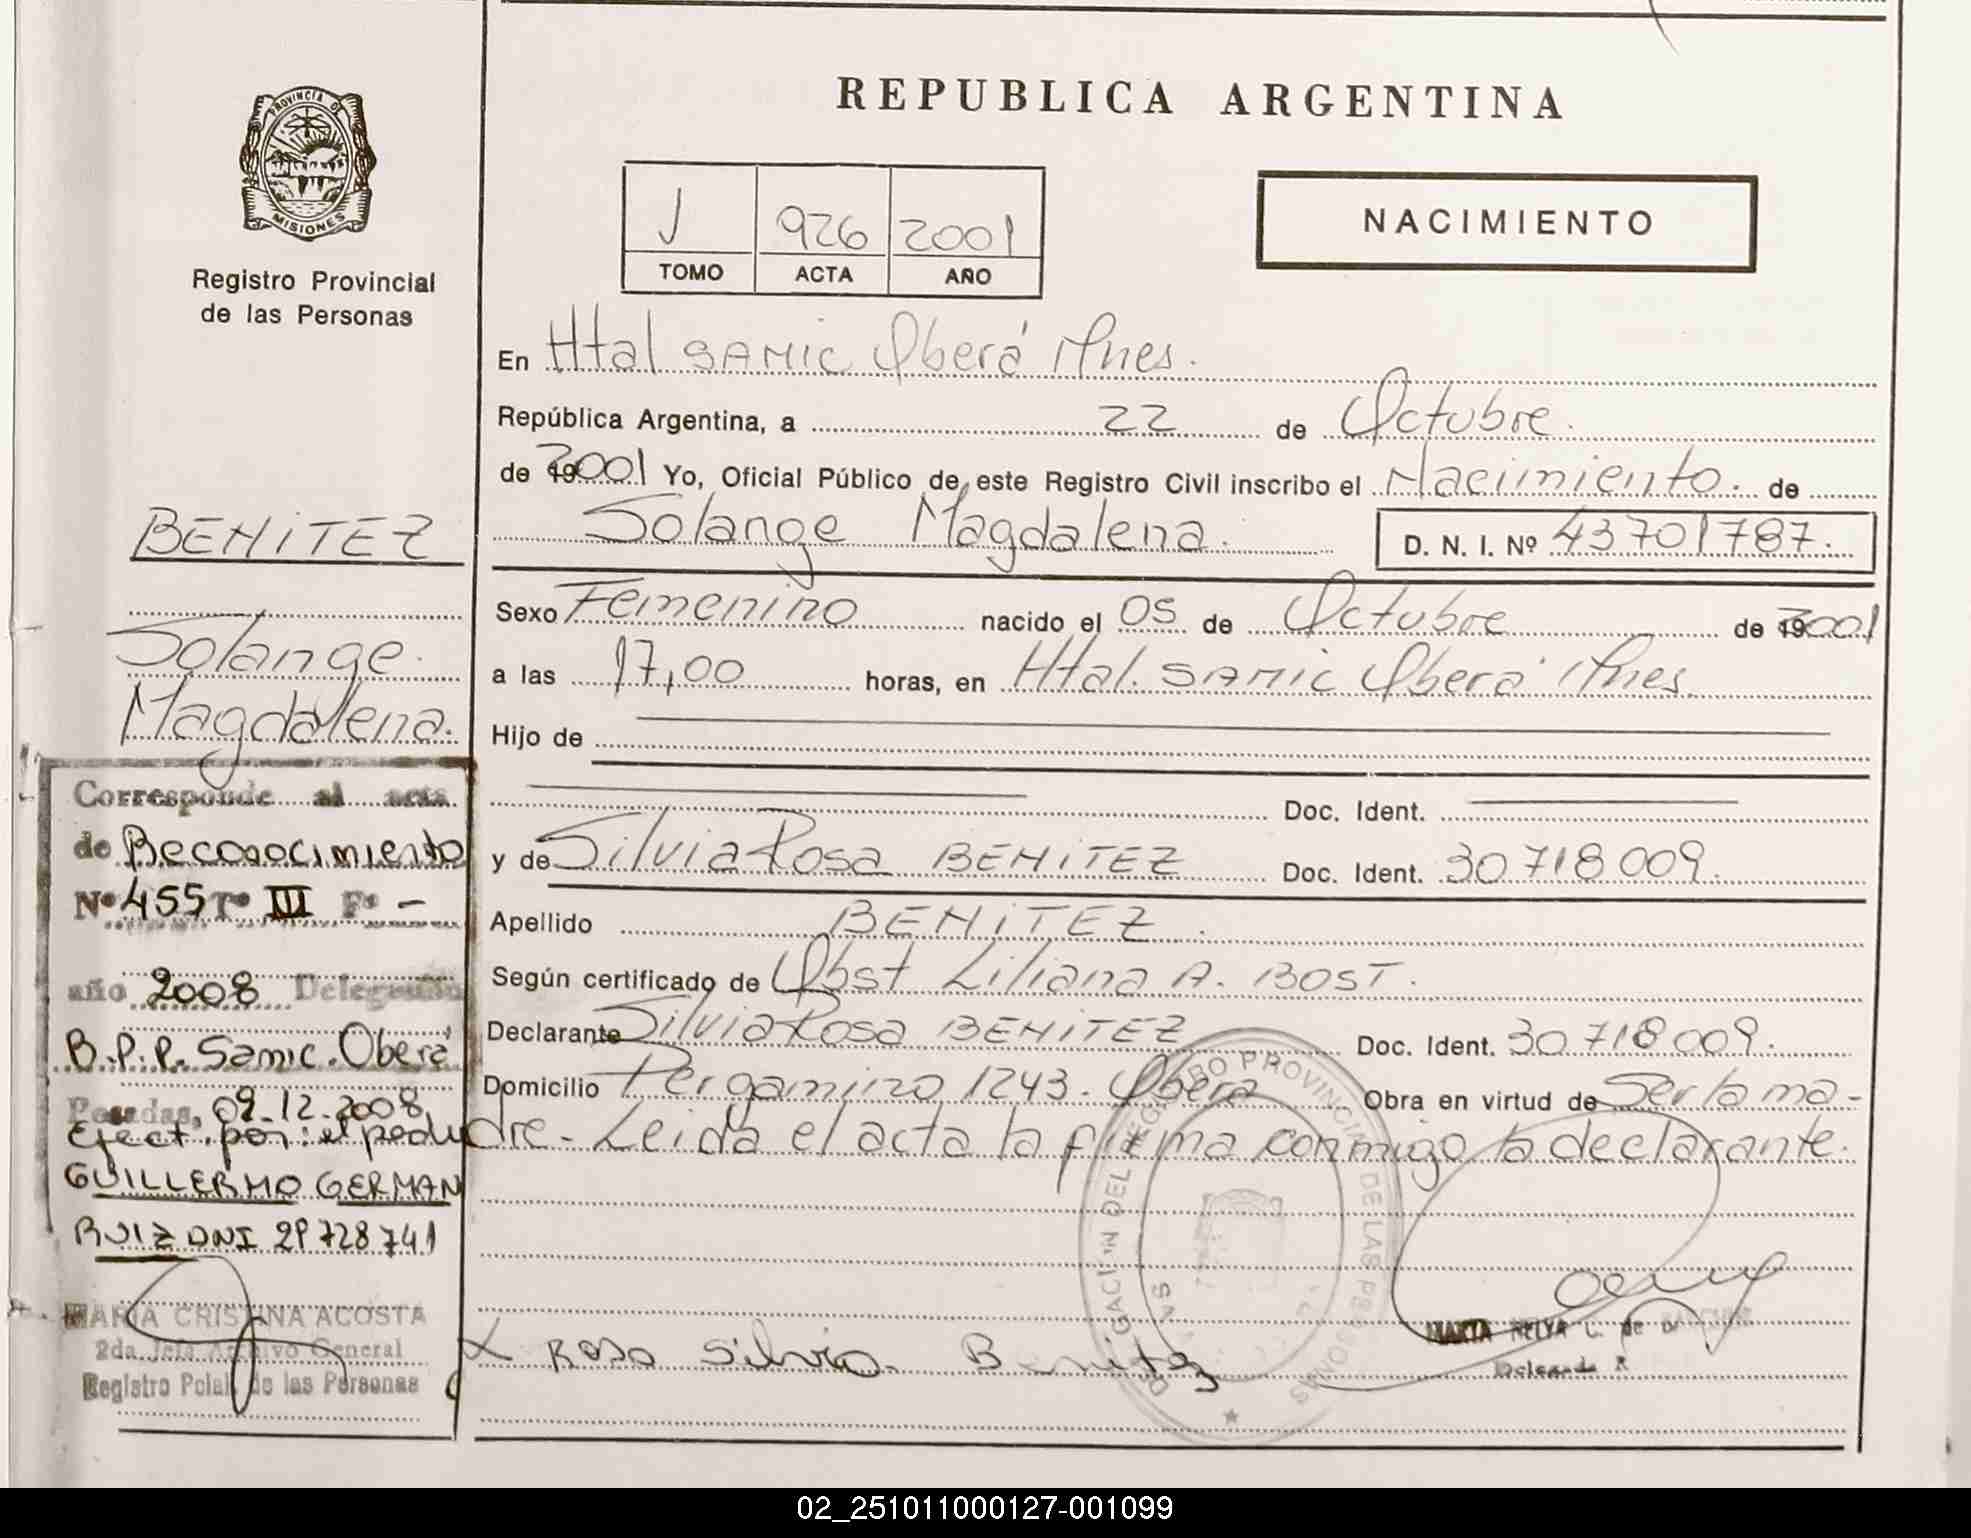 REPUBLICA ARGENTINA
PROVINCIA DE
MISIONES
Registro Provincial
de las Personas
J 926 2001
TOMO ACTA AÑO
NACIMIENTO
En Htal SAMIC Oberá Mnes.
República Argentina, a 22 de Octubre.
de 2001 Yo, Oficial Público de este Registro Civil inscribo el Nacimiento. de
Solange Magdalena. D. N. I. Nº 43701787.
Sexo Femenino nacido el 05 de Octubre de 2001
a las 17,00 horas, en Htal. SAMIC Oberá Mnes.
Hijo de
Doc. Ident.
y de Silvia Rosa BENITEZ Doc. Ident. 30718009.
Apellido BENITEZ.
Según certificado de Obst Liliana A. BOST.
Declarante Silvia Rosa BENITEZ Doc. Ident. 30718009.
Domicilio Pergamino 1243. Oberá Obra en virtud de Ser la ma-
dre- Leida el acta la firma conmigo la declarante.
X Rosa Silvia Benitez
MARTA NELYA C. de
BENITEZ
Solange
Magdalena.
Corresponde al acta
de Reconocimiento
Nº 455 Tº III Fº -
año 2008 Delegación
B.P.P. Samic. Oberá
Posadas, 09-12-2008
eject. por: el
GUILLERMO GERMAN
RUIZ DNI 29728741
MARIA CRISTINA ACOSTA
2da. Jefa Archivo General
Registro Pcial. de las Personas
02_251011000127-001099